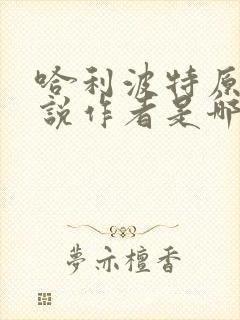 哈利波特原
說作者是哪
夢亦檀香